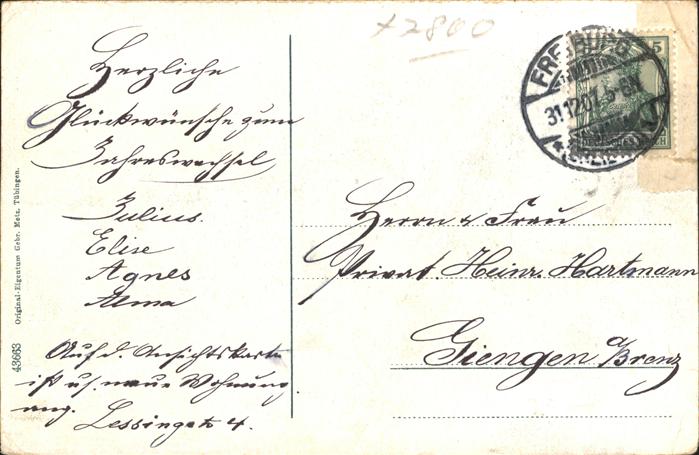 +2800
FREIBURG
31.12.07.5-6N
5
Herzliche
Glückwünsche zum
Jahreswechsel
Julius.
Elise
Agnes
Alma
Auf d. Ansichtskarte
ist us. neue Wohnung
ang. Lessingstr 4.
Herrn & Frau
Privat. Heinr. Hartmann
Giengen a/Brenz
43663 Original-Eigentum Gebr. Metz, Tübingen.